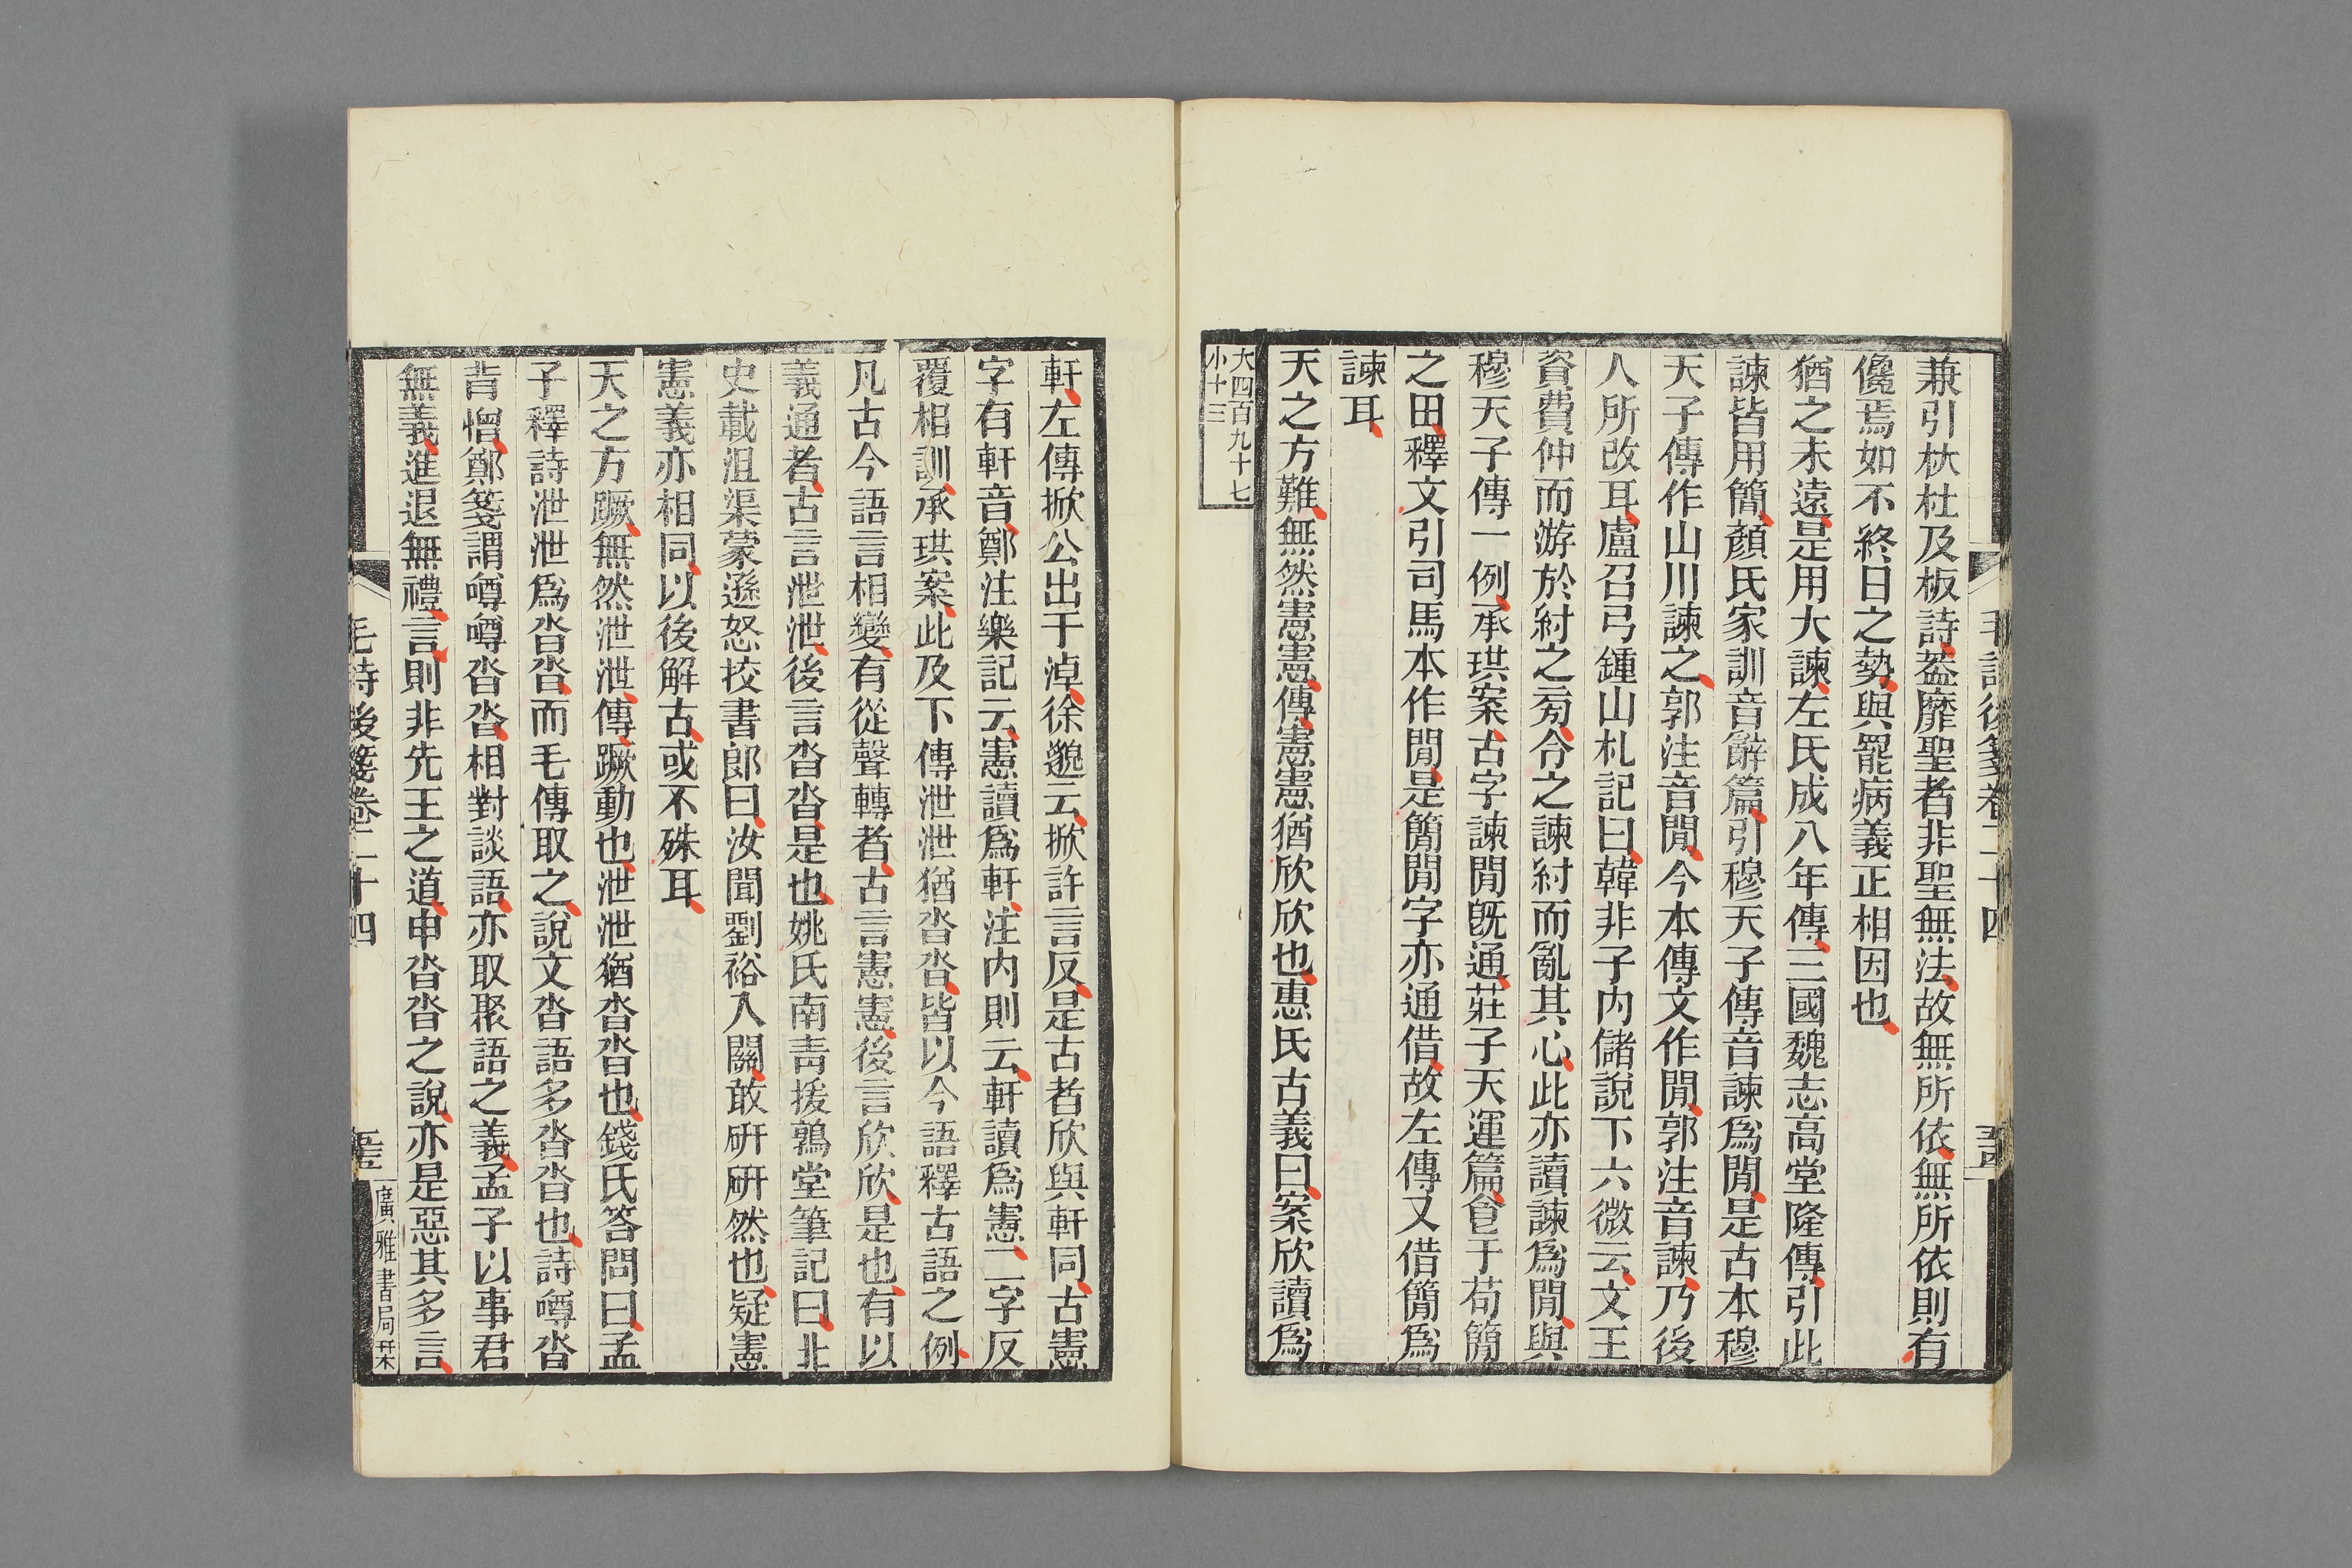 毛詩後箋卷二十四
兼引杕杜及板詩蓋靡聖者非聖無法故無所依無所依則有
儳焉如不終日之勢與罷病義正相因也
猶之未遠是用大諫左氏成八年傳三國魏志高堂隆傳引此
諫皆用簡顏氏家訓音辭篇引穆天子傳音諫爲閒是古本穆
天子傳作山川諫之郭注音閒今本傳文作閒郭注音諫乃後
人所改耳盧召弓鍾山札記曰韓非子內儲說下六微云文王
資費仲而游於紂之㫄令之諫紂而亂其心此亦讀諫爲閒與
穆天子傳一例承珙案古字諫閒旣通莊子天運篇食于苟簡
之田釋文引司馬本作閒是簡閒字亦通借故左傳又借簡爲
諫耳
天之方難無然憲憲傳憲憲猶欣欣也惠氏古義曰案欣讀爲
大四百九十七
小十三
軒左傳掀公出于淖徐邈云掀許言反是古者欣與軒同古憲
字有軒音鄭注樂記云憲讀爲軒注內則云軒讀爲憲二字反
覆相訓承珙案此及下傳泄泄猶沓沓皆以今語釋古語之例
凡古今語言相變有從聲轉者古言憲憲後言欣欣是也有以
義通者古言泄泄後言沓沓是也姚氏南靑援鶉堂筆記曰北
史載沮渠蒙遜怒挍書郎曰汝聞劉裕入關敢硏硏然也疑憲
憲義亦相同以後解古或不殊耳
天之方蹶無然泄泄傳蹶動也泄泄猶沓沓也錢氏答問曰孟
子釋詩泄泄爲沓沓而毛傳取之說文沓語多沓沓也詩噂沓
背憎鄭箋謂噂噂沓沓相對談語亦取聚語之義孟子以事君
無義進退無禮言則非先王之道申沓沓之說亦是惡其多言
毛詩後箋卷二十四
廣雅書局栞